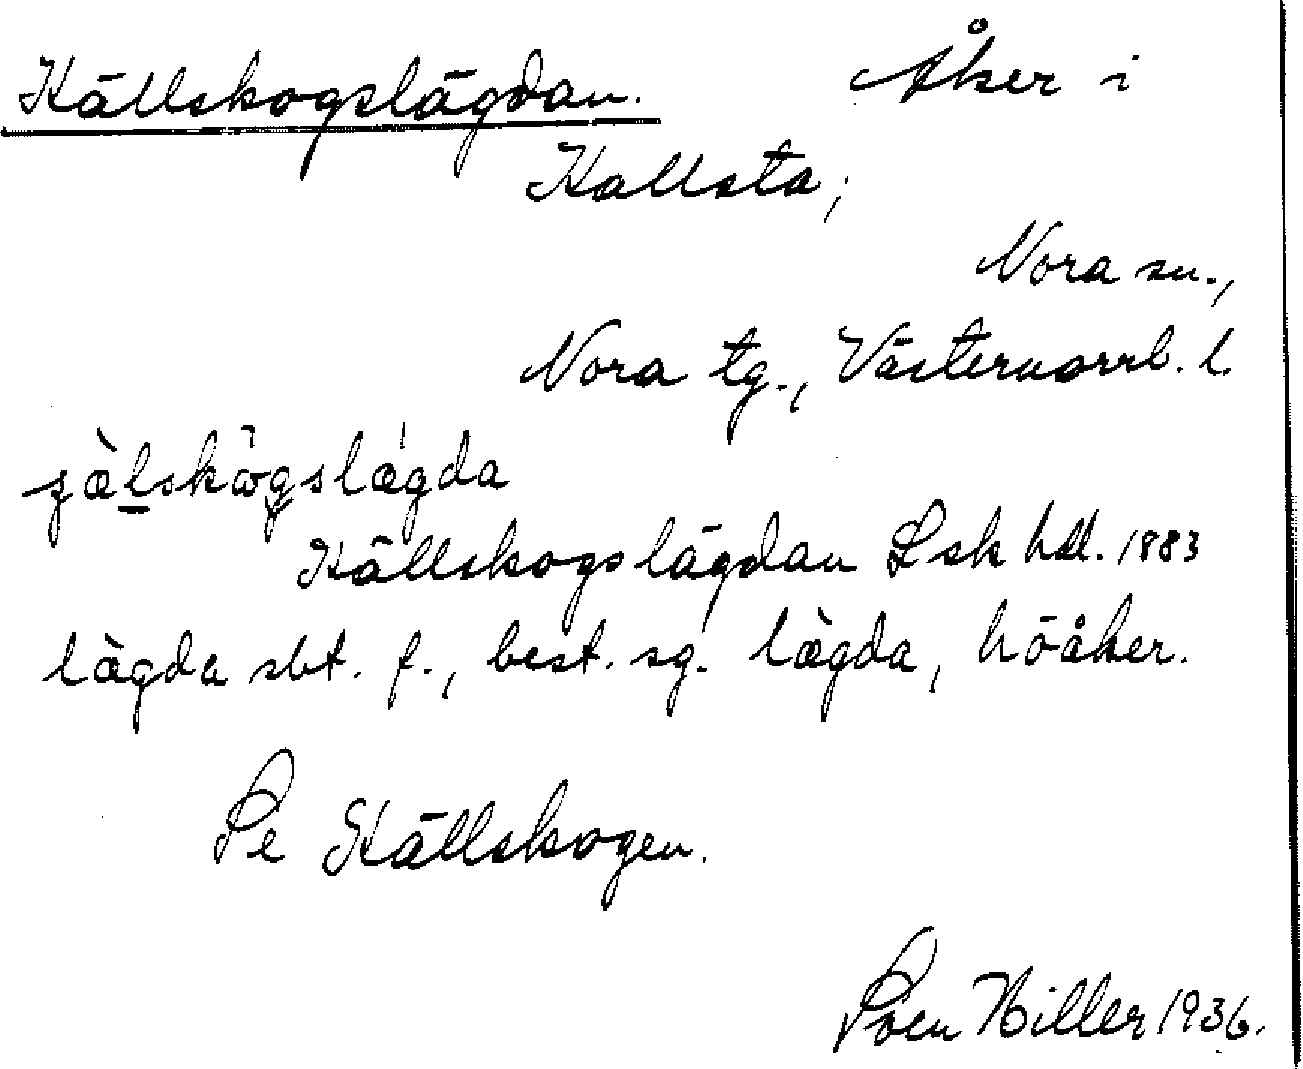 Källskogslägdan. Åker i
Kallsta;
Nora sn.,
Nora tg., Västernorrl. l.
Källskogslägdan Lsk hdl. 1883
lägda sbt. f., best. sg. lägda, höåker.
Se Källskogen.
Sven Hiller 1936.